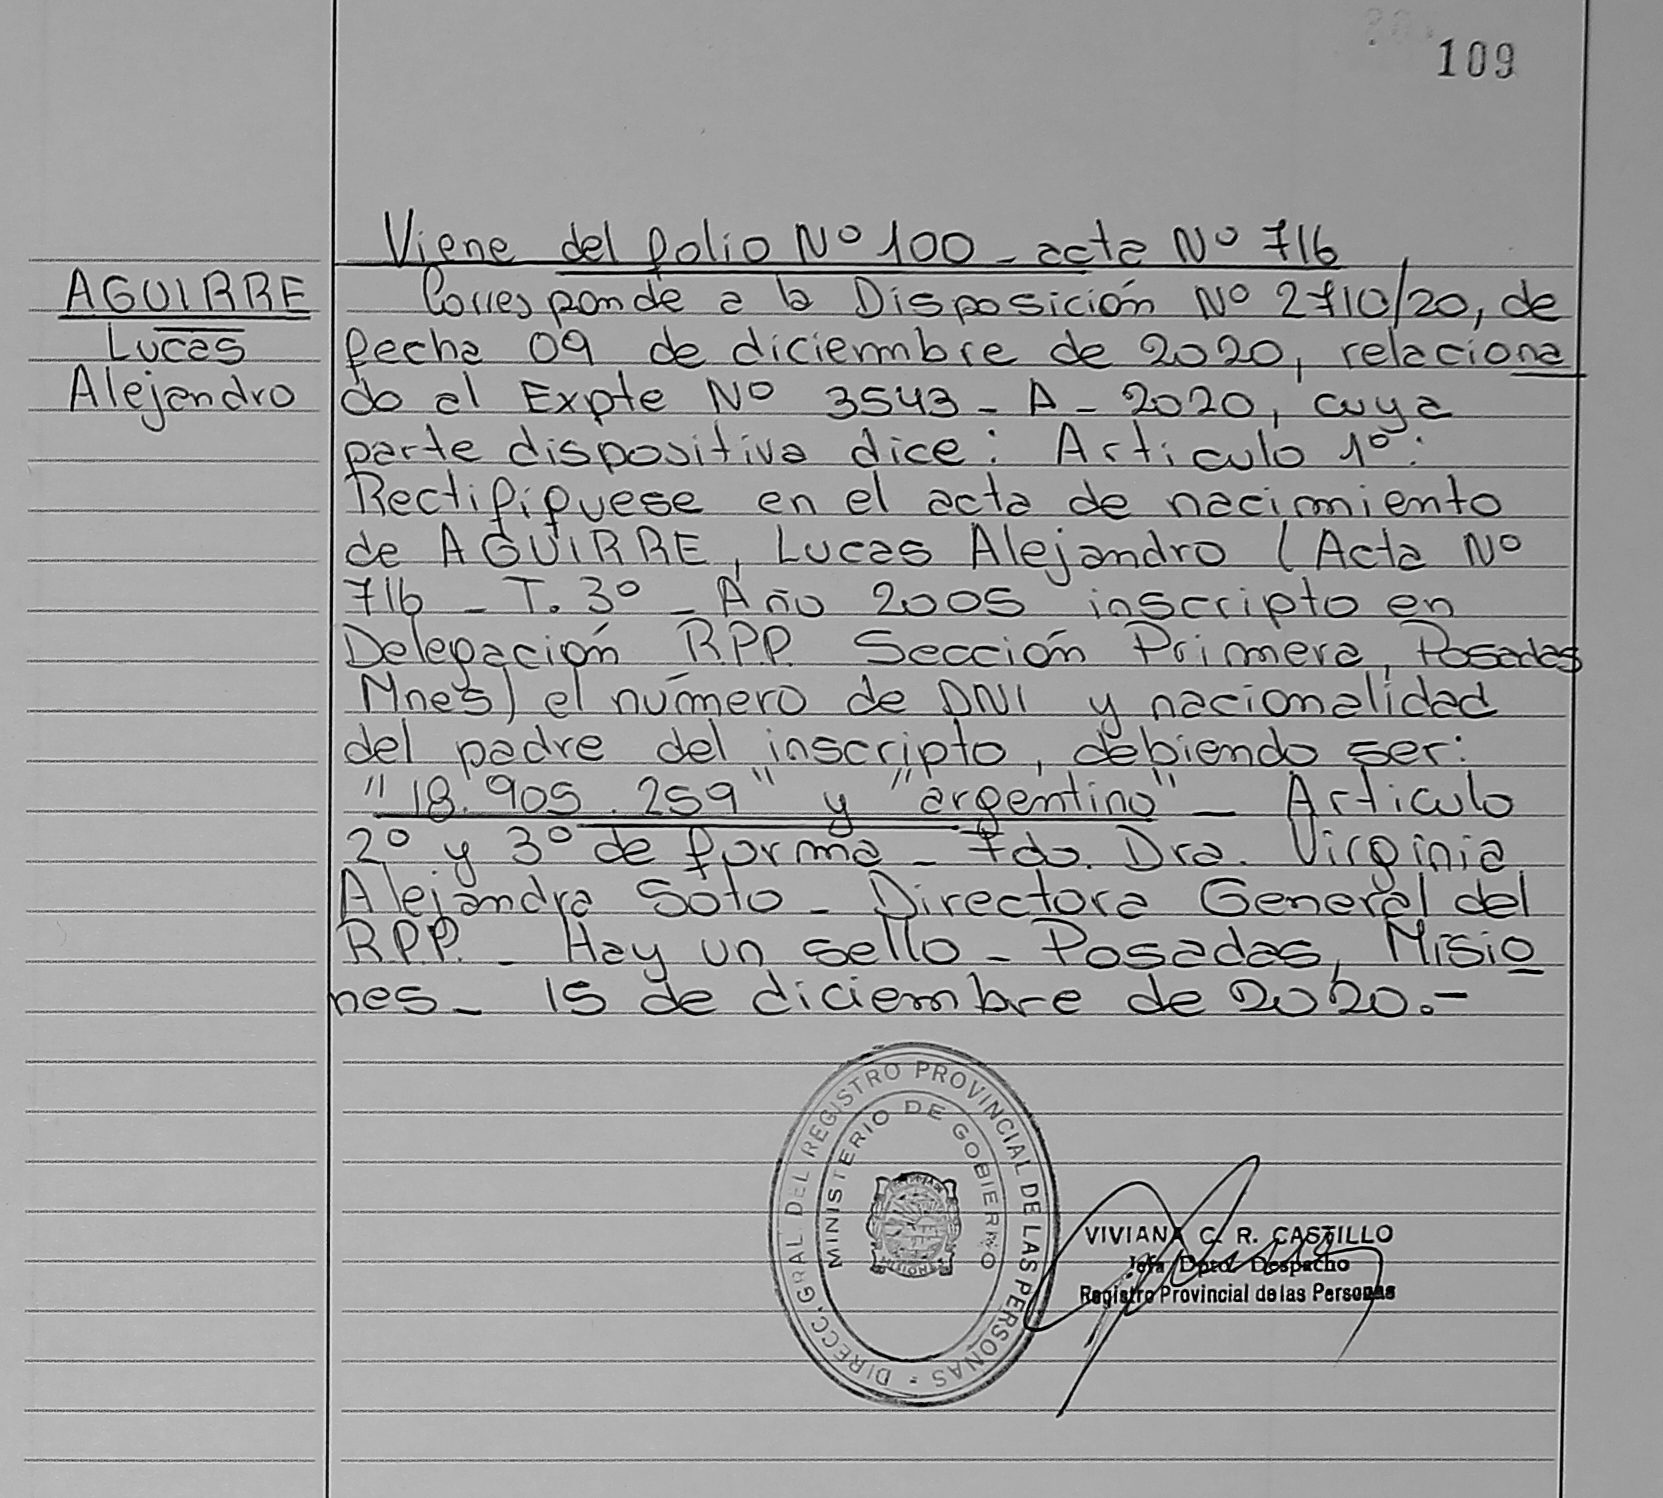 109
Viene del folio Nº 100 - acta Nº 716
AGUIRRE
Lucas
Alejandro
Corresponde a la Disposición Nº 2710/20, de
fecha 09 de diciembre de 2020, relaciona
do al Expte Nº 3543 - A - 2020, cuya
parte dispositiva dice: Articulo 1º:
Rectifíquese en el acta de nacimiento
de AGUIRRE, Lucas Alejandro (Acta Nº
716 - T. 3º - Año 2005 inscripto en
Delegación R.P.P. Sección Primera, Posadas
Mnes) el número de DNI y nacionalidad
del padre del inscripto, debiendo ser:
"18.905.259" y "argentino" - Articulo
2º y 3º de forma - Fdo. Dra. Virginia
Alejandra Soto - Directora General del
R.P.P. - Hay un sello - Posadas, Misio
nes - 15 de diciembre de 2020.-
DIRECC. GRAL. DEL REGISTRO PROVINCIAL DE LAS PERSONAS
MINISTERIO DE GOBIERNO
VIVIANA C. R. CASTILLO
Jefa Dpto. Despacho
Registro Provincial de las Personas